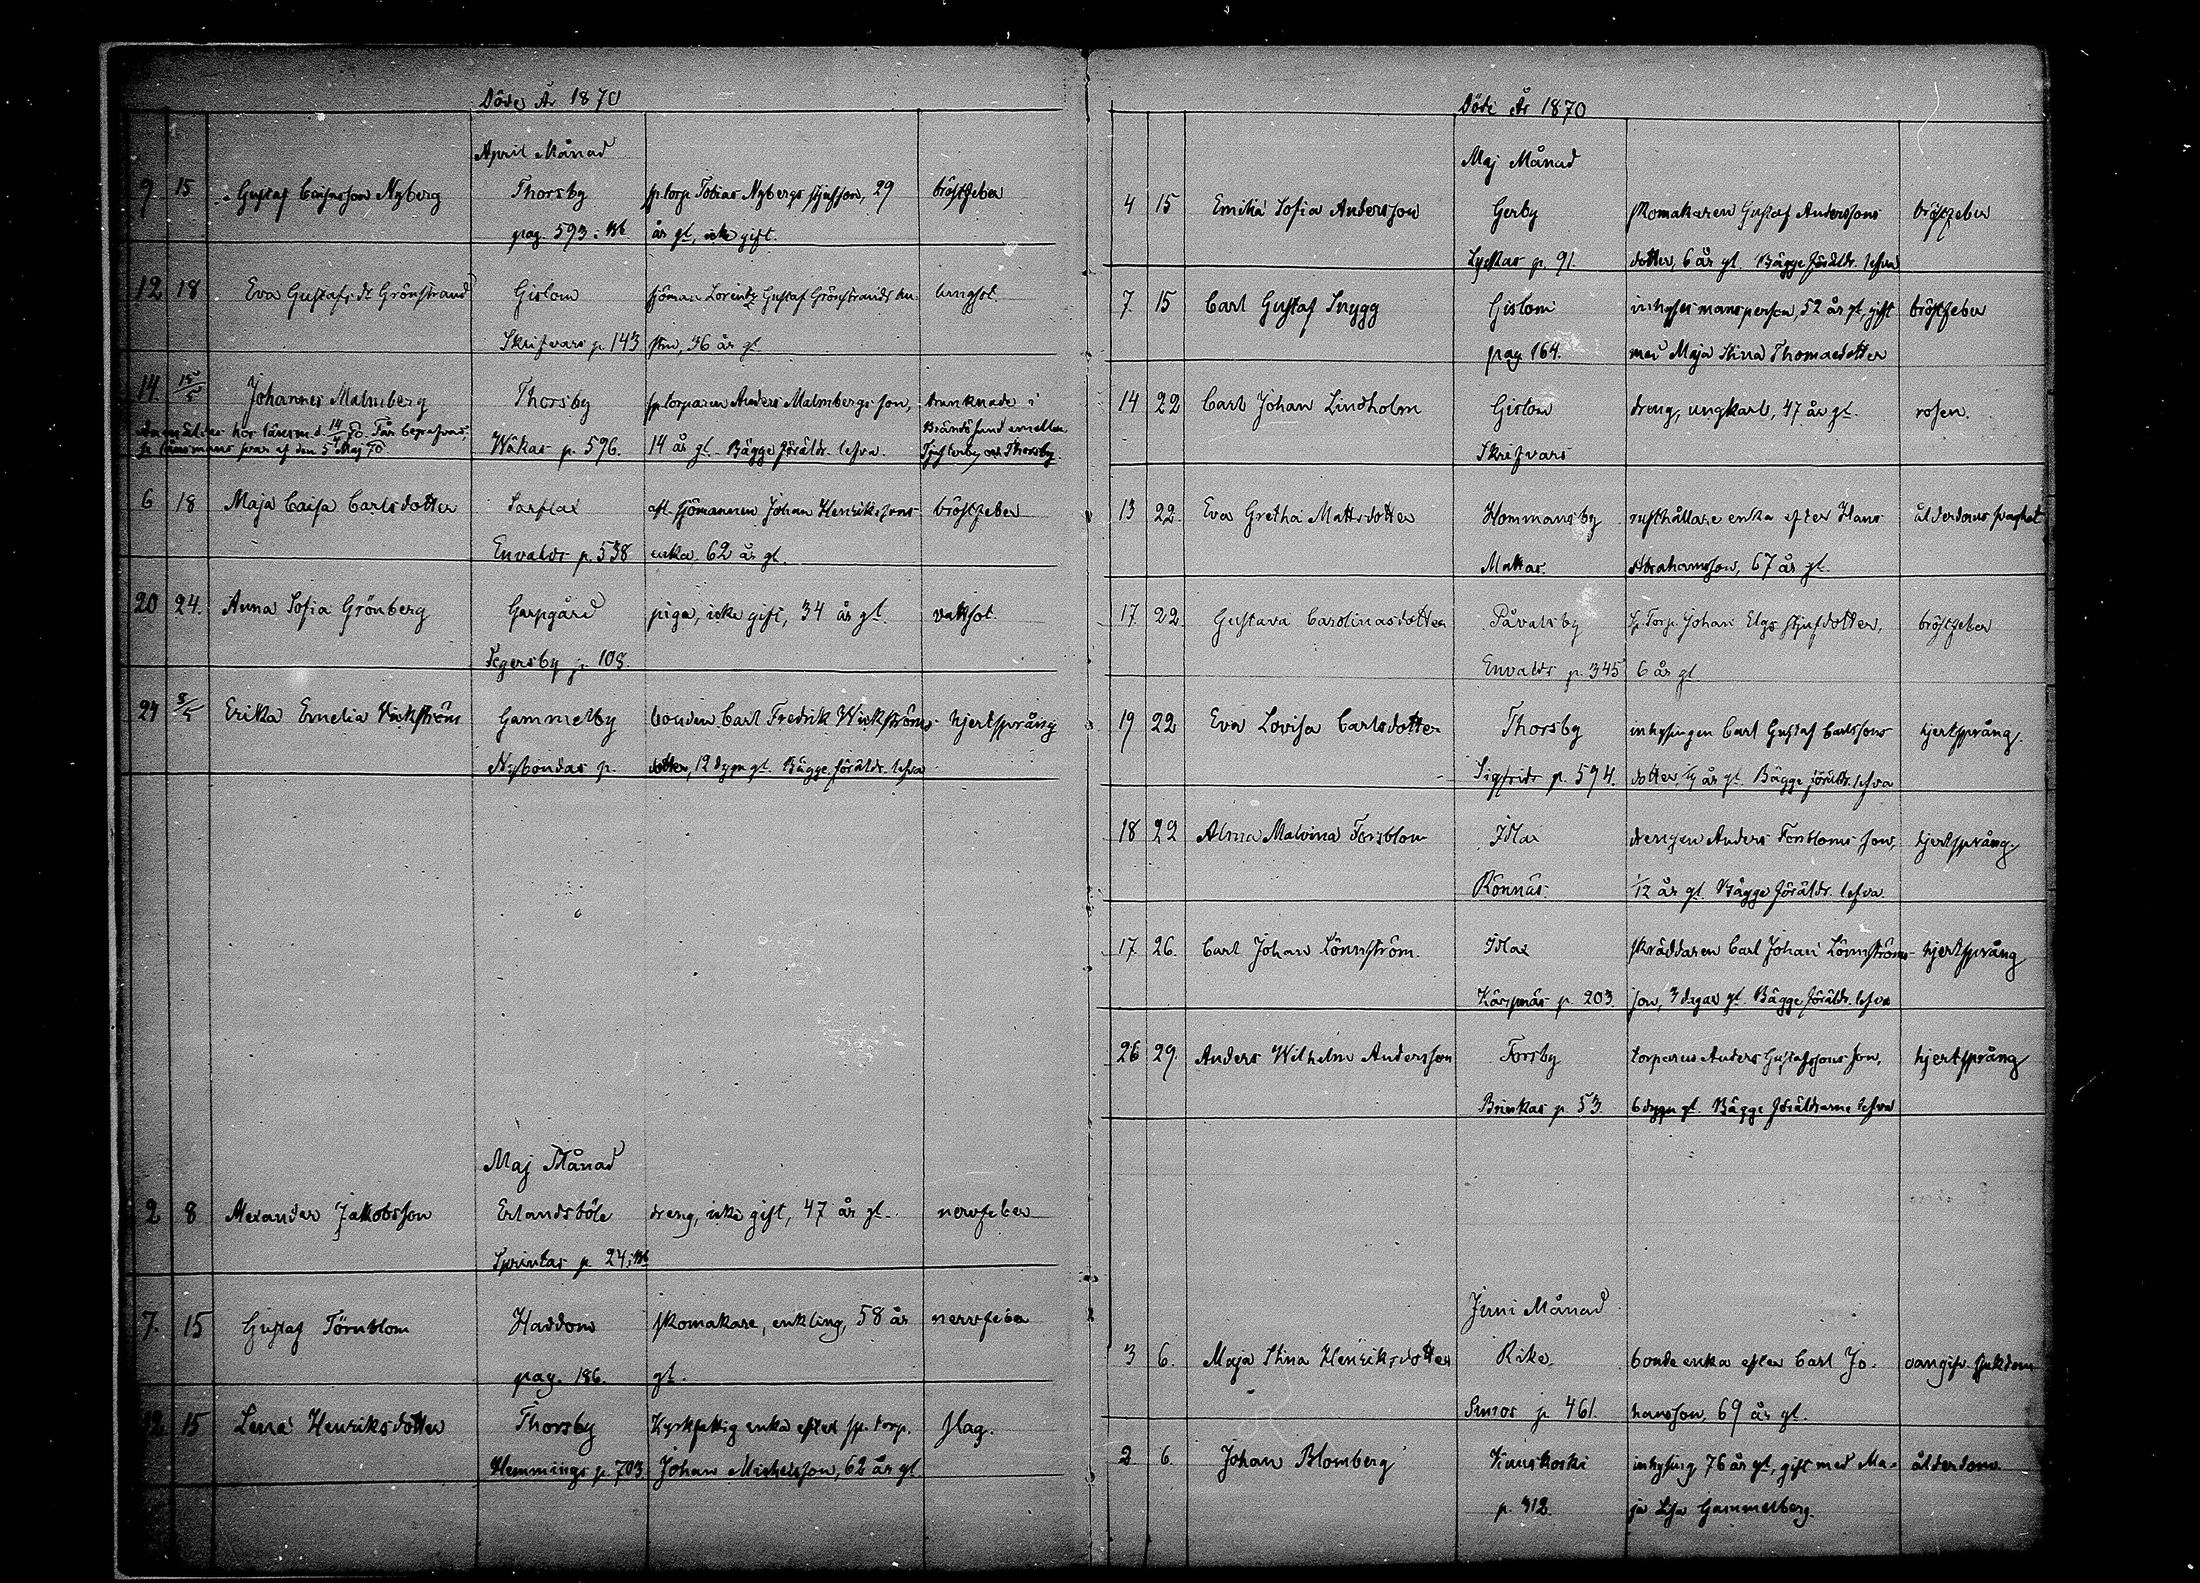 Döde År 1870
April Månad
9 15 Gustaf Cajsasson Nyberg Thorsby sp.torp. Tobias Nybergs styfson, 29 bröstfeber
pag. 593 år gl, icke gift.
12 18 Eva Gustafsdr Grönstrand Gislom sjöman Lorentz Gustaf Grönstrands hu- lungsot.
Skrifvars p 143 stru, 36 år gl.
14 15/5 Johannes Malmberg Thorsby sp.torparen Anders Malmbergs son, drunknade i
Wäkas p. 596. 14 år gl. Bägge föräldr. lefva. Brändö sund emellan
och Thorsby.
6 18 Maja Caisa Carlsdotter Sarflax afl. sjömannen Johan Henrikssons bröstfeber
Envalds p. 538 enka, 62 år gl.
20 24. Anna Sofia Grönberg Garpgård piga, icke gift, 34 år gl. vattsot.
Tegersby p. 108.
24 8/5 Erika Emelia Wickström Gammelby bonden Carl Fredrik Wickströms hjertsprång
Nybondas p. dotter, 12 dygn gl. Bägge föräldr. lefva
Maj Månad
2 8 Alexander Jakobsson Erlandsböle dreng, icke gift, 47 år gl. nervfeber
p 24
7. 15 Gustaf Törnblom Haddom skomakare, enkling, 58 år nervfeber
pag. 186. gl.
12 15 Lena Henriksdotter Thorsby Kyrkfattig enka efter sp. torp. slag.
Hemmings p. 703 Johan Michelsson, 62 år gl
Döde År 1870
Maj Månad
4 15 Emilia Sofia Andersson Gerby skomakaren Gustaf Anderssons bröstfeber
Lyckas p. 91. dotter, 6 år gl. Bägge föräldr. lefva
7. 15 Carl Gustaf Snygg Gislom inhyses mansperson, 52 år gl, gift bröstfeber
pag 164. med Maja Stina Thomasdotter
14 22 Carl Johan Lindholm Gislom dreng, ungkarl, 47 år gl. rosen.
Skrifvars
13 22. Eva Gretha Mattsdotter Hommansby rusthållare enka efter Hans ålderdoms svaghet
Makas. Abrahamsson, 67 år gl.
17. 22 Gustava Carolinasdotter Påvalsby sp. Torp. Johan Elgs styfdotter, bröstfeber
Envalds p. 345 6 år gl
19 22 Eva Lovisa Carlsdotter Thorsby inhysingen Carl Gustaf Carlssons hjertsprång.
Sigfrids p. 594. dotter, år gl. Bägge föräldr. lefva
18 22 Alma Malvina Forsblom Isla drengen Anders Forsbloms son, hjertsprång.
Rönnäs. 1/12 år gl. Bägge föräldr. lefva.
17. 26. Carl Johan Lönnström. Isla skräddaren Carl Johan Lönnströms hjertsprång
Kärpnäs p. 203. son, 3 dagar gl. Bägge föräldr. lefva
26 29. Anders Wilhelm Andersson Forsby torparen Anders Gustafssons son, hjertsprång
Brinkas p. 53. 6 dygn gl. Bägge föräldrarne lefva
Juni Månad
3 6. Maja Stina Henriksdotter Rike bonde enka efter Carl Jo- oangifv. sjukdom
Simos p 461. hansson, 69 år gl.
2 6. Johan Blomberg Kimokoski inhysing 76 år gl, gift med Ma- ålderdom.
p. 312 ja Lisa Gammelberg.